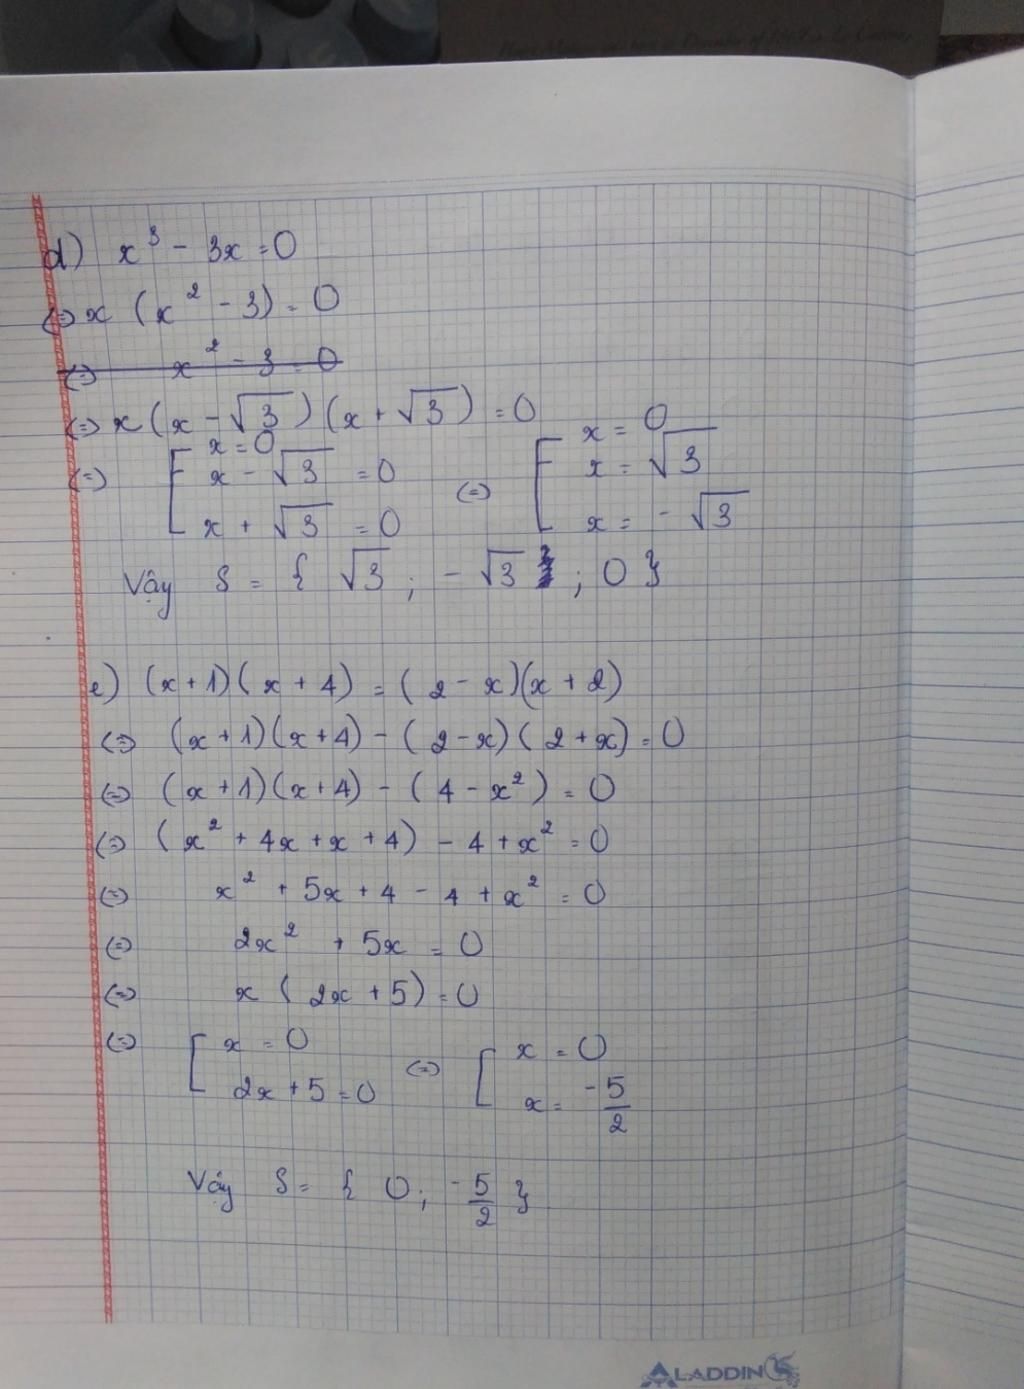 d) x³ - 3x = 0
(=) x (x² - 3) = 0
(=) x² - 3 = 0
(=) x (x - √3) (x + √3) = 0
(=) [ x = 0
x - √3 = 0
x + √3 = 0
(=) [ x = 0
x = √3
x = - √3
Vậy S = { √3 ; - √3 ; 0 }
e) (x + 1)(x + 4) = (2 - x)(x + 2)
(=) (x + 1)(x + 4) - (2 - x)(2 + x) = 0
(=) (x + 1)(x + 4) - (4 - x²) = 0
(=) (x² + 4x + x + 4) - 4 + x² = 0
(=) x² + 5x + 4 - 4 + x² = 0
(=) 2x² + 5x = 0
(=) x (2x + 5) = 0
(=) [ x = 0
2x + 5 = 0
(=) [ x = 0
x = -5/2
Vậy S = { 0 ; -5/2 }
ALADDIN